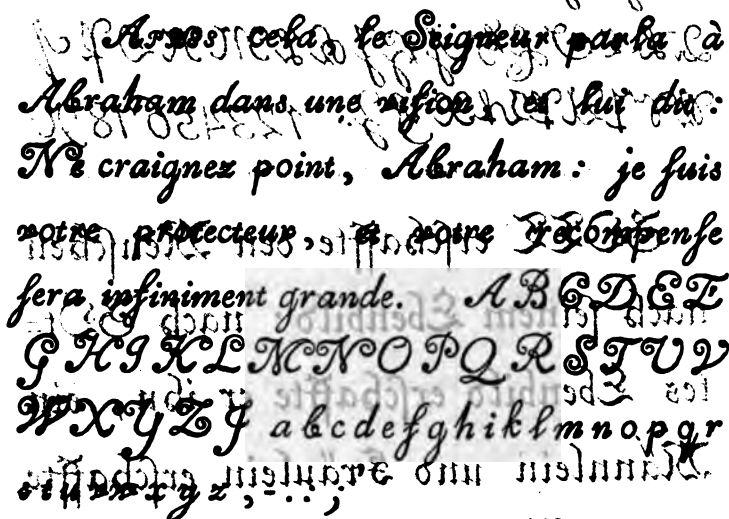 Après cela, le Seigneur parla à
Abraham dans une viſion, et lui dit :
Ne craignez point, Abraham : je ſuis
votre protecteur, et votre recompenſe
ſera infiniment grande. A B C D E F
G H I K L M N O P Q R S T U V
W X Y Z J a b c d e f g h i k l m n o p q r
s t u v w x y z , - . : ;